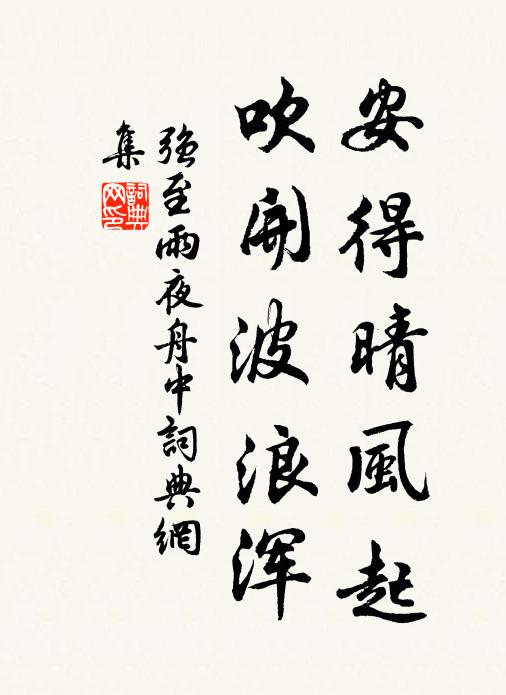 安得晴風起
吹開波浪渾
強至雨夜舟中詞典網
集
詞典
网印